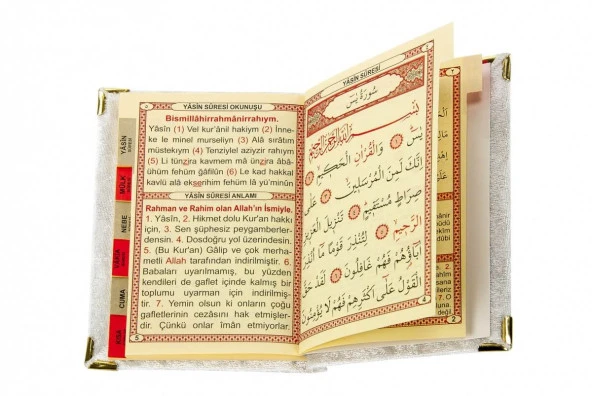 YÂSİN SÛRESİ OKUNUŞU
Bismillâhirrahmânirrahıym.
Yâsîn (1) Vel kur'ânil hakiym (2) İnne-
ke le minel murseliyn (3) Alâ sırâtım
müstekiym (4) Tenziylel aziyzir rahıym
(5) Li tünzira kavmem mâ ünzira âbâ-
ühüm fehüm ğâfilûn (6) Le kad hakkal
kavlü alâ ekserihim fehüm lâ yü'minûn
YÂSİN SÛRESİ ANLAMI
Rahman ve Rahim olan Allah'ın İsmiyle.
1. Yâsîn, 2. Hikmet dolu Kur'an hakkı
için, 3. Sen şüphesiz peygamberler-
densin. 4. Dosdoğru yol üzerindesin.
5. (Bu Kur'an) Gâlip ve çok merha-
metli Allah tarafından indirilmiştir. 6.
Babaları uyarılmamış, bu yüzden
kendileri de gaflet içinde kalmış bir
toplumu uyarman için indirilmiş-
tir. 7. Yemin olsun ki onların çoğu
gafletlerinin cezasını hak etmişler-
dir. Çünkü onlar îmân etmiyorlar.
5
YÂSİN
MÜLK
NEBE
CUMA
YÂSİN SÛRESİ
سُورَةُ يٰسٓ
بِسْمِ اللهِ الرَّحْمٰنِ الرَّحِيمِ
يٰسٓ وَالْقُرْاٰنِ الْحَكِيمِ
اِنَّكَ لَمِنَ الْمُرْسَلِينَ عَلٰى
صِرَاطٍ مُسْتَقِيمٍ تَنْزِيلَ الْعَزِيزِ
الرَّحِيمِ لِتُنْذِرَ قَوْمًا مَا اُنْذِرَ
اٰبَاؤُهُمْ فَهُمْ غَافِلُونَ لَقَدْ حَقَّ
الْقَوْلُ عَلٰى اَكْثَرِهِمْ فَهُمْ لَا يُؤْمِنُونَ
4
2